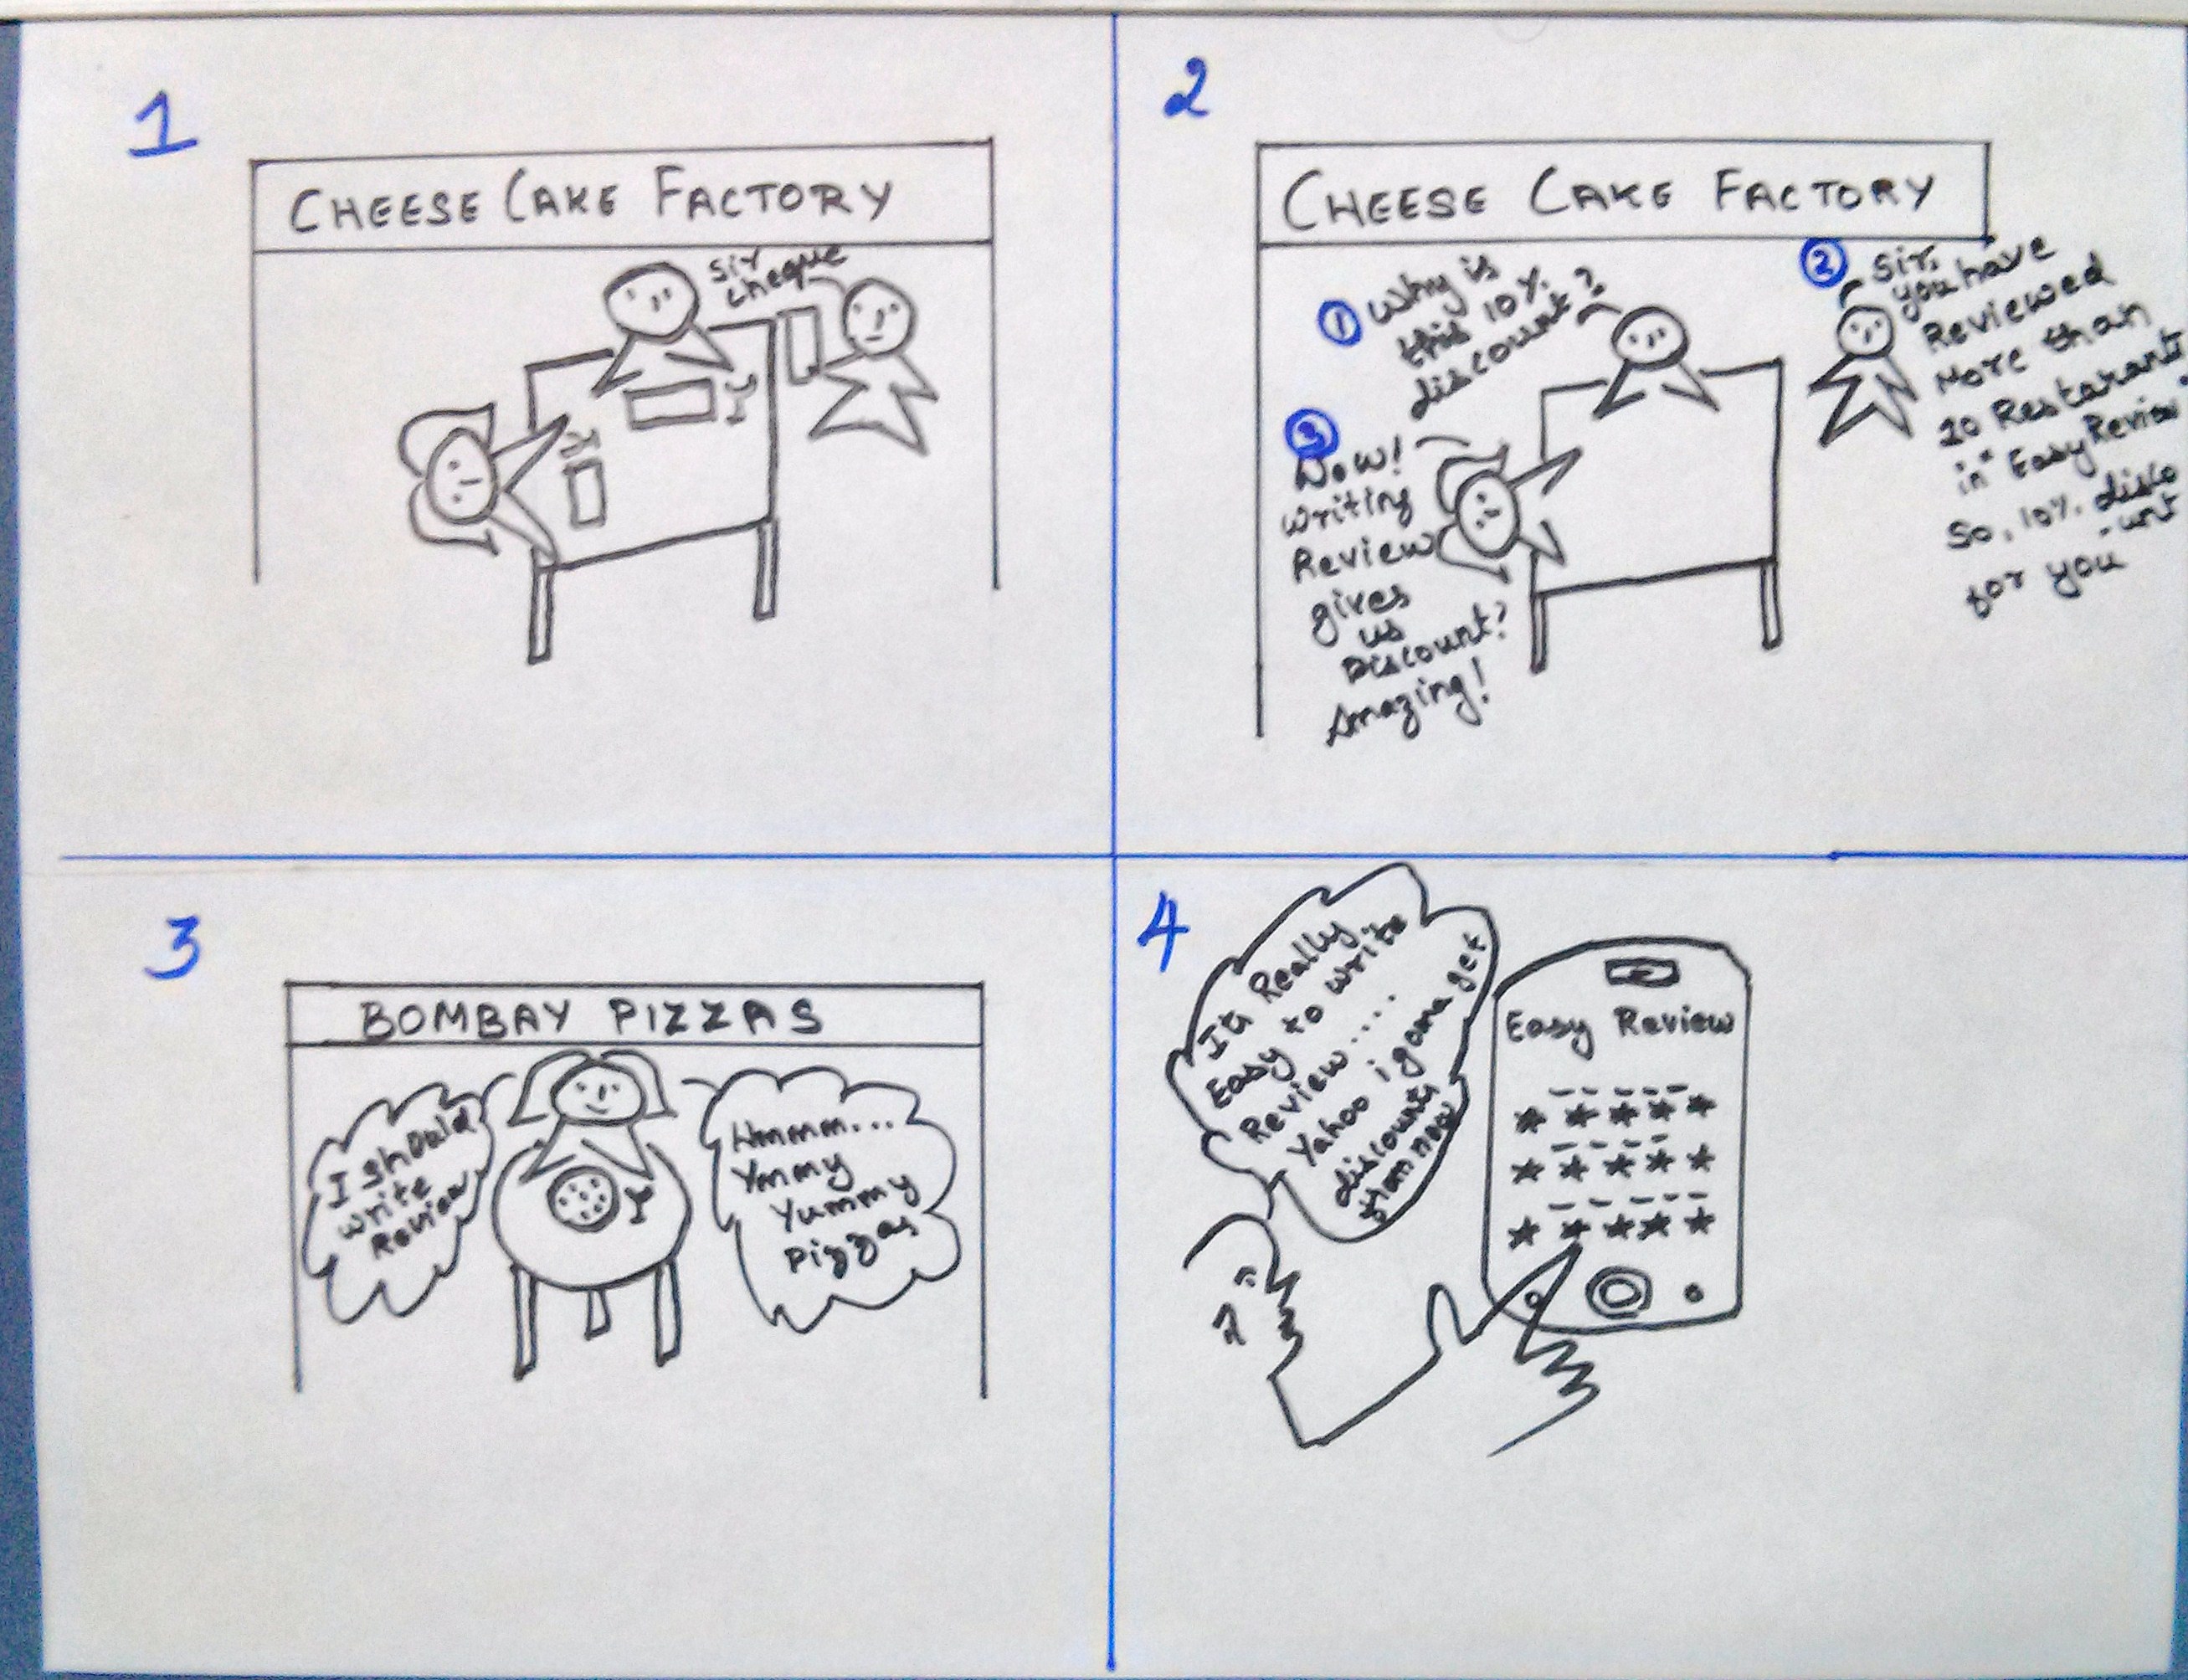 1
CHEESE CAKE FACTORY
Sir
cheque
2
CHEESE CAKE FACTORY
1 Why is
this 10%
discount?
2 Sir,
you have
Reviewed
More than
20 Restarants
in "Easy Review"
So, 10% disco
-unt
for you
3
Wow!
writing
Review
gives
us
Discount?
Amazing!
3
BOMBAY PIZZAS
I should
write
Review
Hmmm...
Ymmy
Yummy
Pizzas
4
It's Really
Easy to write
Review....
Yahoo i gona get
discounts
from now
Easy Review